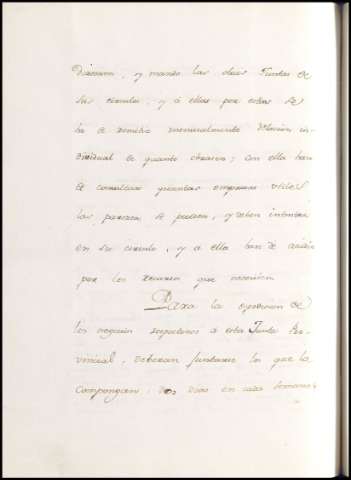 Direccion, y mando las otras Juntas de
su circulo, y á ellas por estas se
ha de remitir mensualmente relacion in-
dividual de quanto obraren; con ella han
de consultar quantas empresas utiles
les parezca se pueden, y deben intentar
en su circulo, y á ella han de acudir
por los recursos que necesiten
Para la expedicion de
los negocios respectivos á esta Junta Pro-
vincial, deberan juntarse los que la
Compongan, dos dias en cada semana,